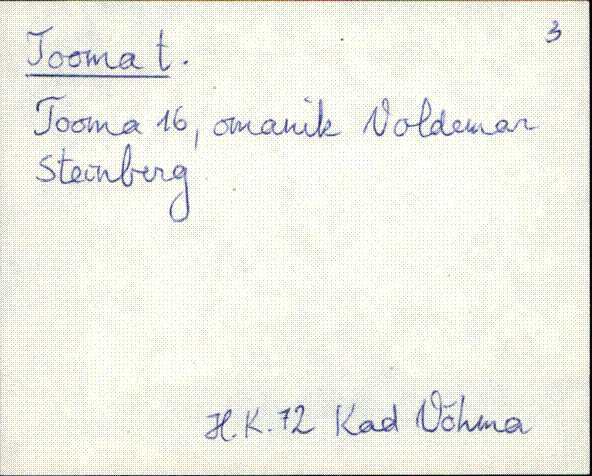 3
Tooma t.
Tooma 16, omanik Voldemar
Steinberg
H.K. 72 Kad Võhma